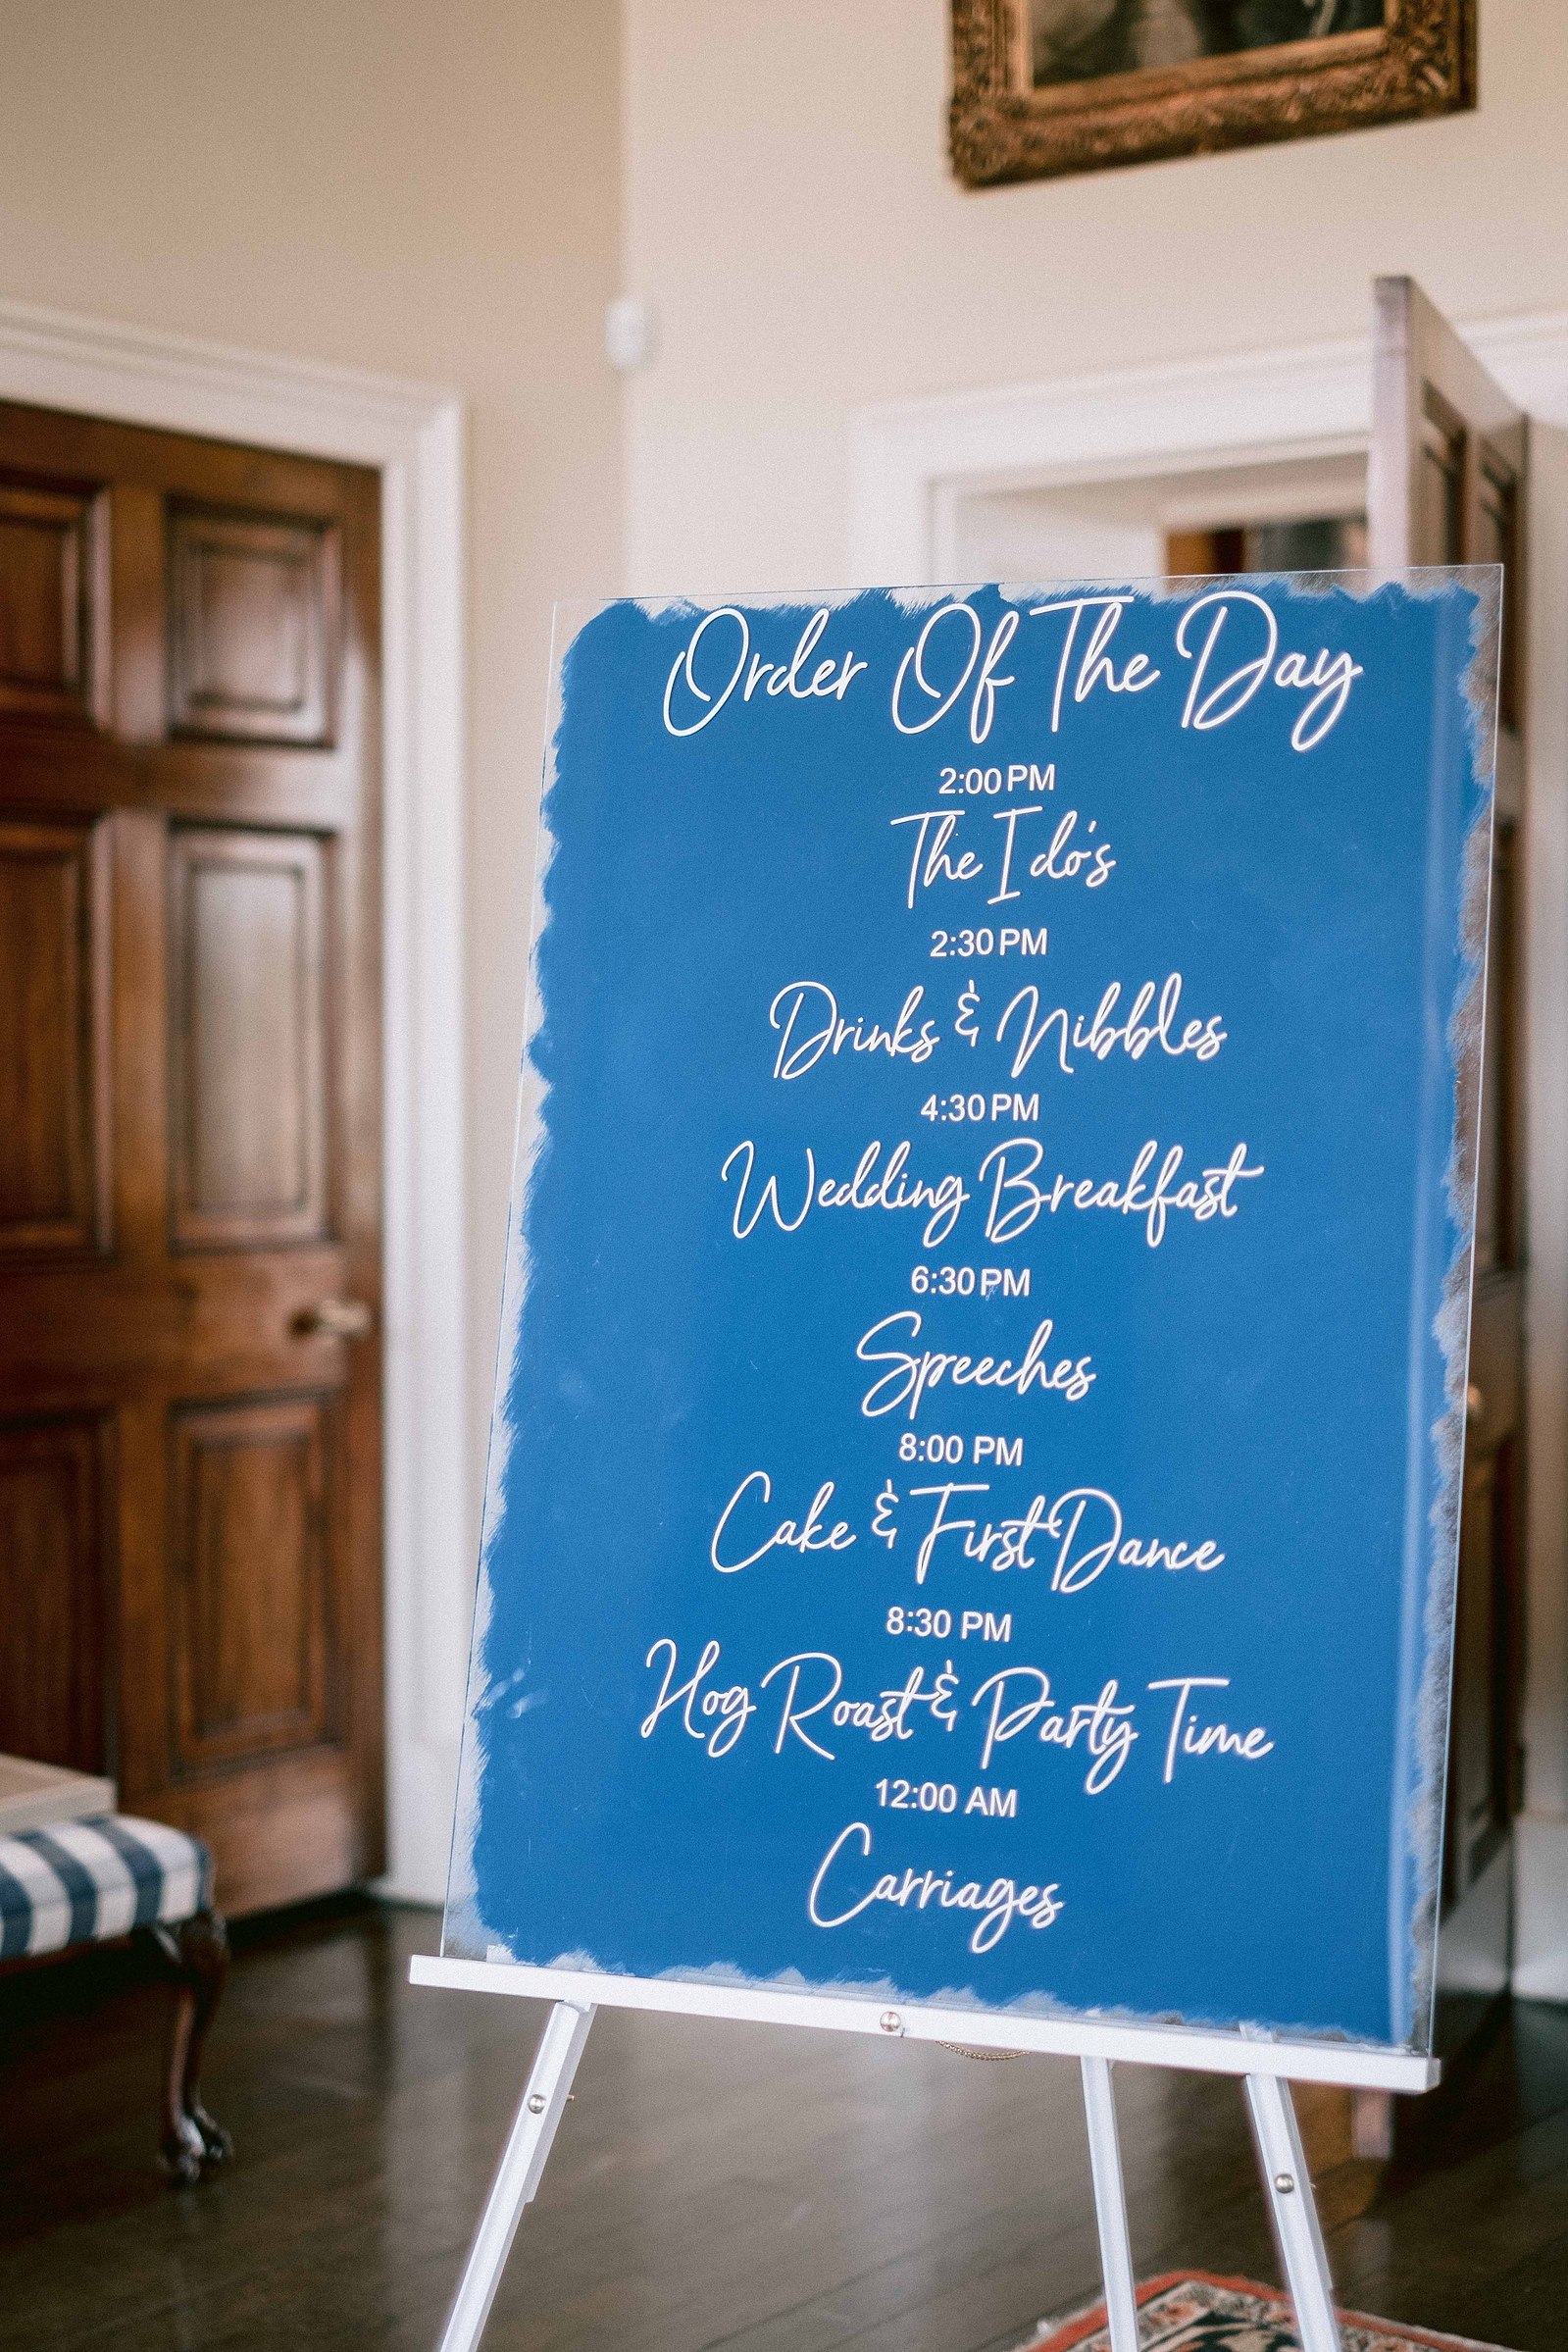 Order Of The Day
2:00 PM
The I do's
2:30 PM
Drinks & Nibbles
4:30 PM
Wedding Breakfast
6:30 PM
Speeches
8:00 PM
Cake & First Dance
8:30 PM
Hog Roast & Party Time
12:00 AM
Carriages